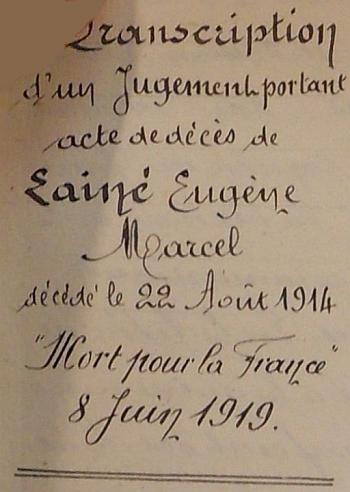 Transcription
d'un Jugement portant
acte de décès de
Lainé Eugène
Marcel
décédé le 22 Août 1914
"Mort pour la France"
8 Juin 1919.